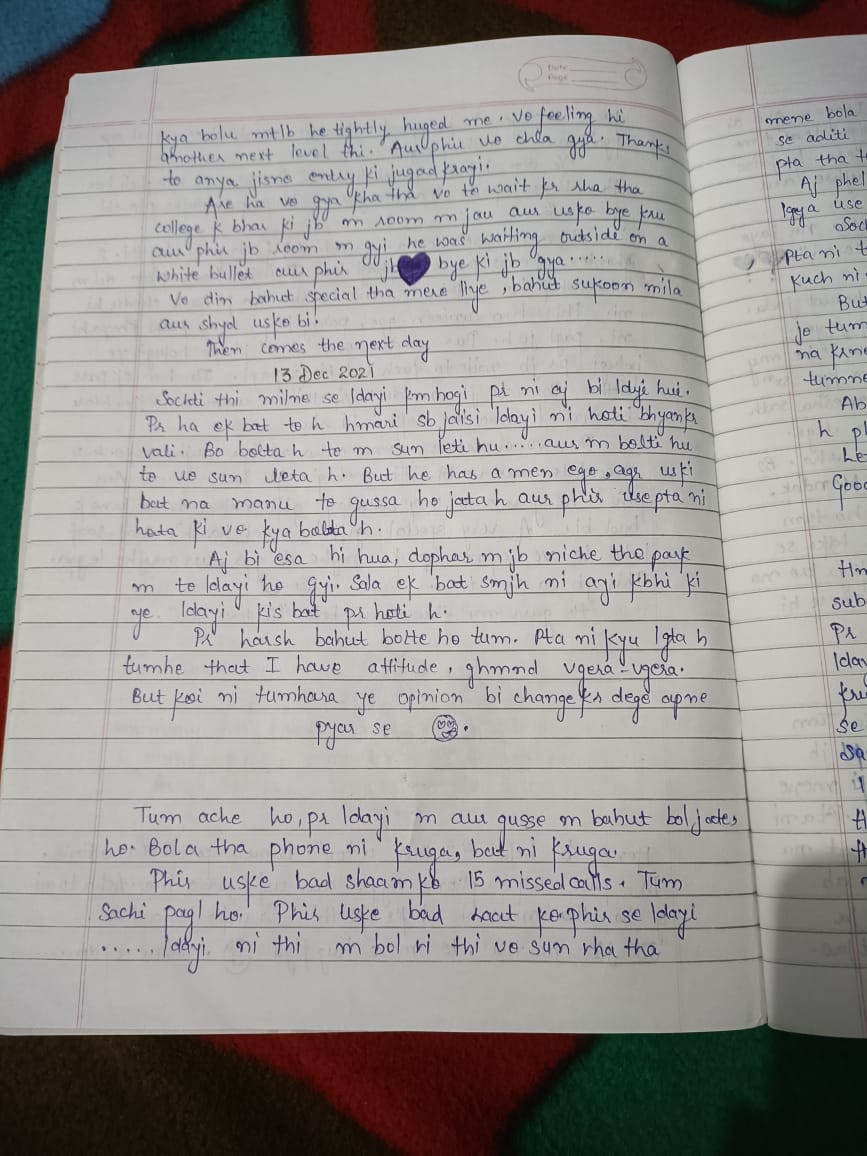 Date
Page
Kya bolu mtlb he tightly huged me. Vo feeling hi
another next level thi. Aur phir vo chla gya. Thanks
to anya jisne entry ki jugad krayi.
Are ha vo gya kha tha vo to wait kr rha tha
college k bhar ki jb m room m jau aur usko bye kru
aur phir jb room m gyi he was waiting outside on a
white bullet aur phir jb 💜 bye ki jb gya......
Vo din bahut special tha mere liye, bahut sukoon mila
aur shyd usko bi.
Then comes the next day
13 Dec 2021
Sochti thi milne se ldayi km hogi pr ni aj bi ldyi hui.
Pr ha ek bat to h hmari sb jaisi ldayi ni hoti bhyankr
vali. Bo bolta h to m sun leti hu..... aur m bolti hu
to vo sun leta h. But he has a men ego, agr uski
bat na manu to gussa ho jata h aur phir use pta ni
hota ki vo kya bolta h.
Aj bi esa hi hua, dophar m jb niche the park
m to ldayi ho gyi. Sala ek bat smjh ni ayi kbhi ki
ye ldayi kis bat pr hoti h.
Pr harsh bahut bolte ho tum. Pta ni kyu lgta h
tumhe that I have attitude, ghmnd vgera-vgera.
But koi ni tumhara ye opinion bi change kr dege apne
pyar se
Tum ache ho, pr ldayi m aur gusse m bahut bol jate
ho. Bola tha phone ni kruga, bat ni kruga.
Phir uske bad shaam ko 15 missed calls. Tum
sachi pagl ho. Phir uske bad raat ko phir se ldayi
..... ldayi ni thi m bol ri thi vo sun rha tha
mene bola
se aditi
pta tha t
Aj phel
lgya use
Soc
pta ni t
Kuch ni
But
jo tum
na krne
tumne
Ab
h pl
Le
Good
Hm
sub
Pr
lda
kru
se